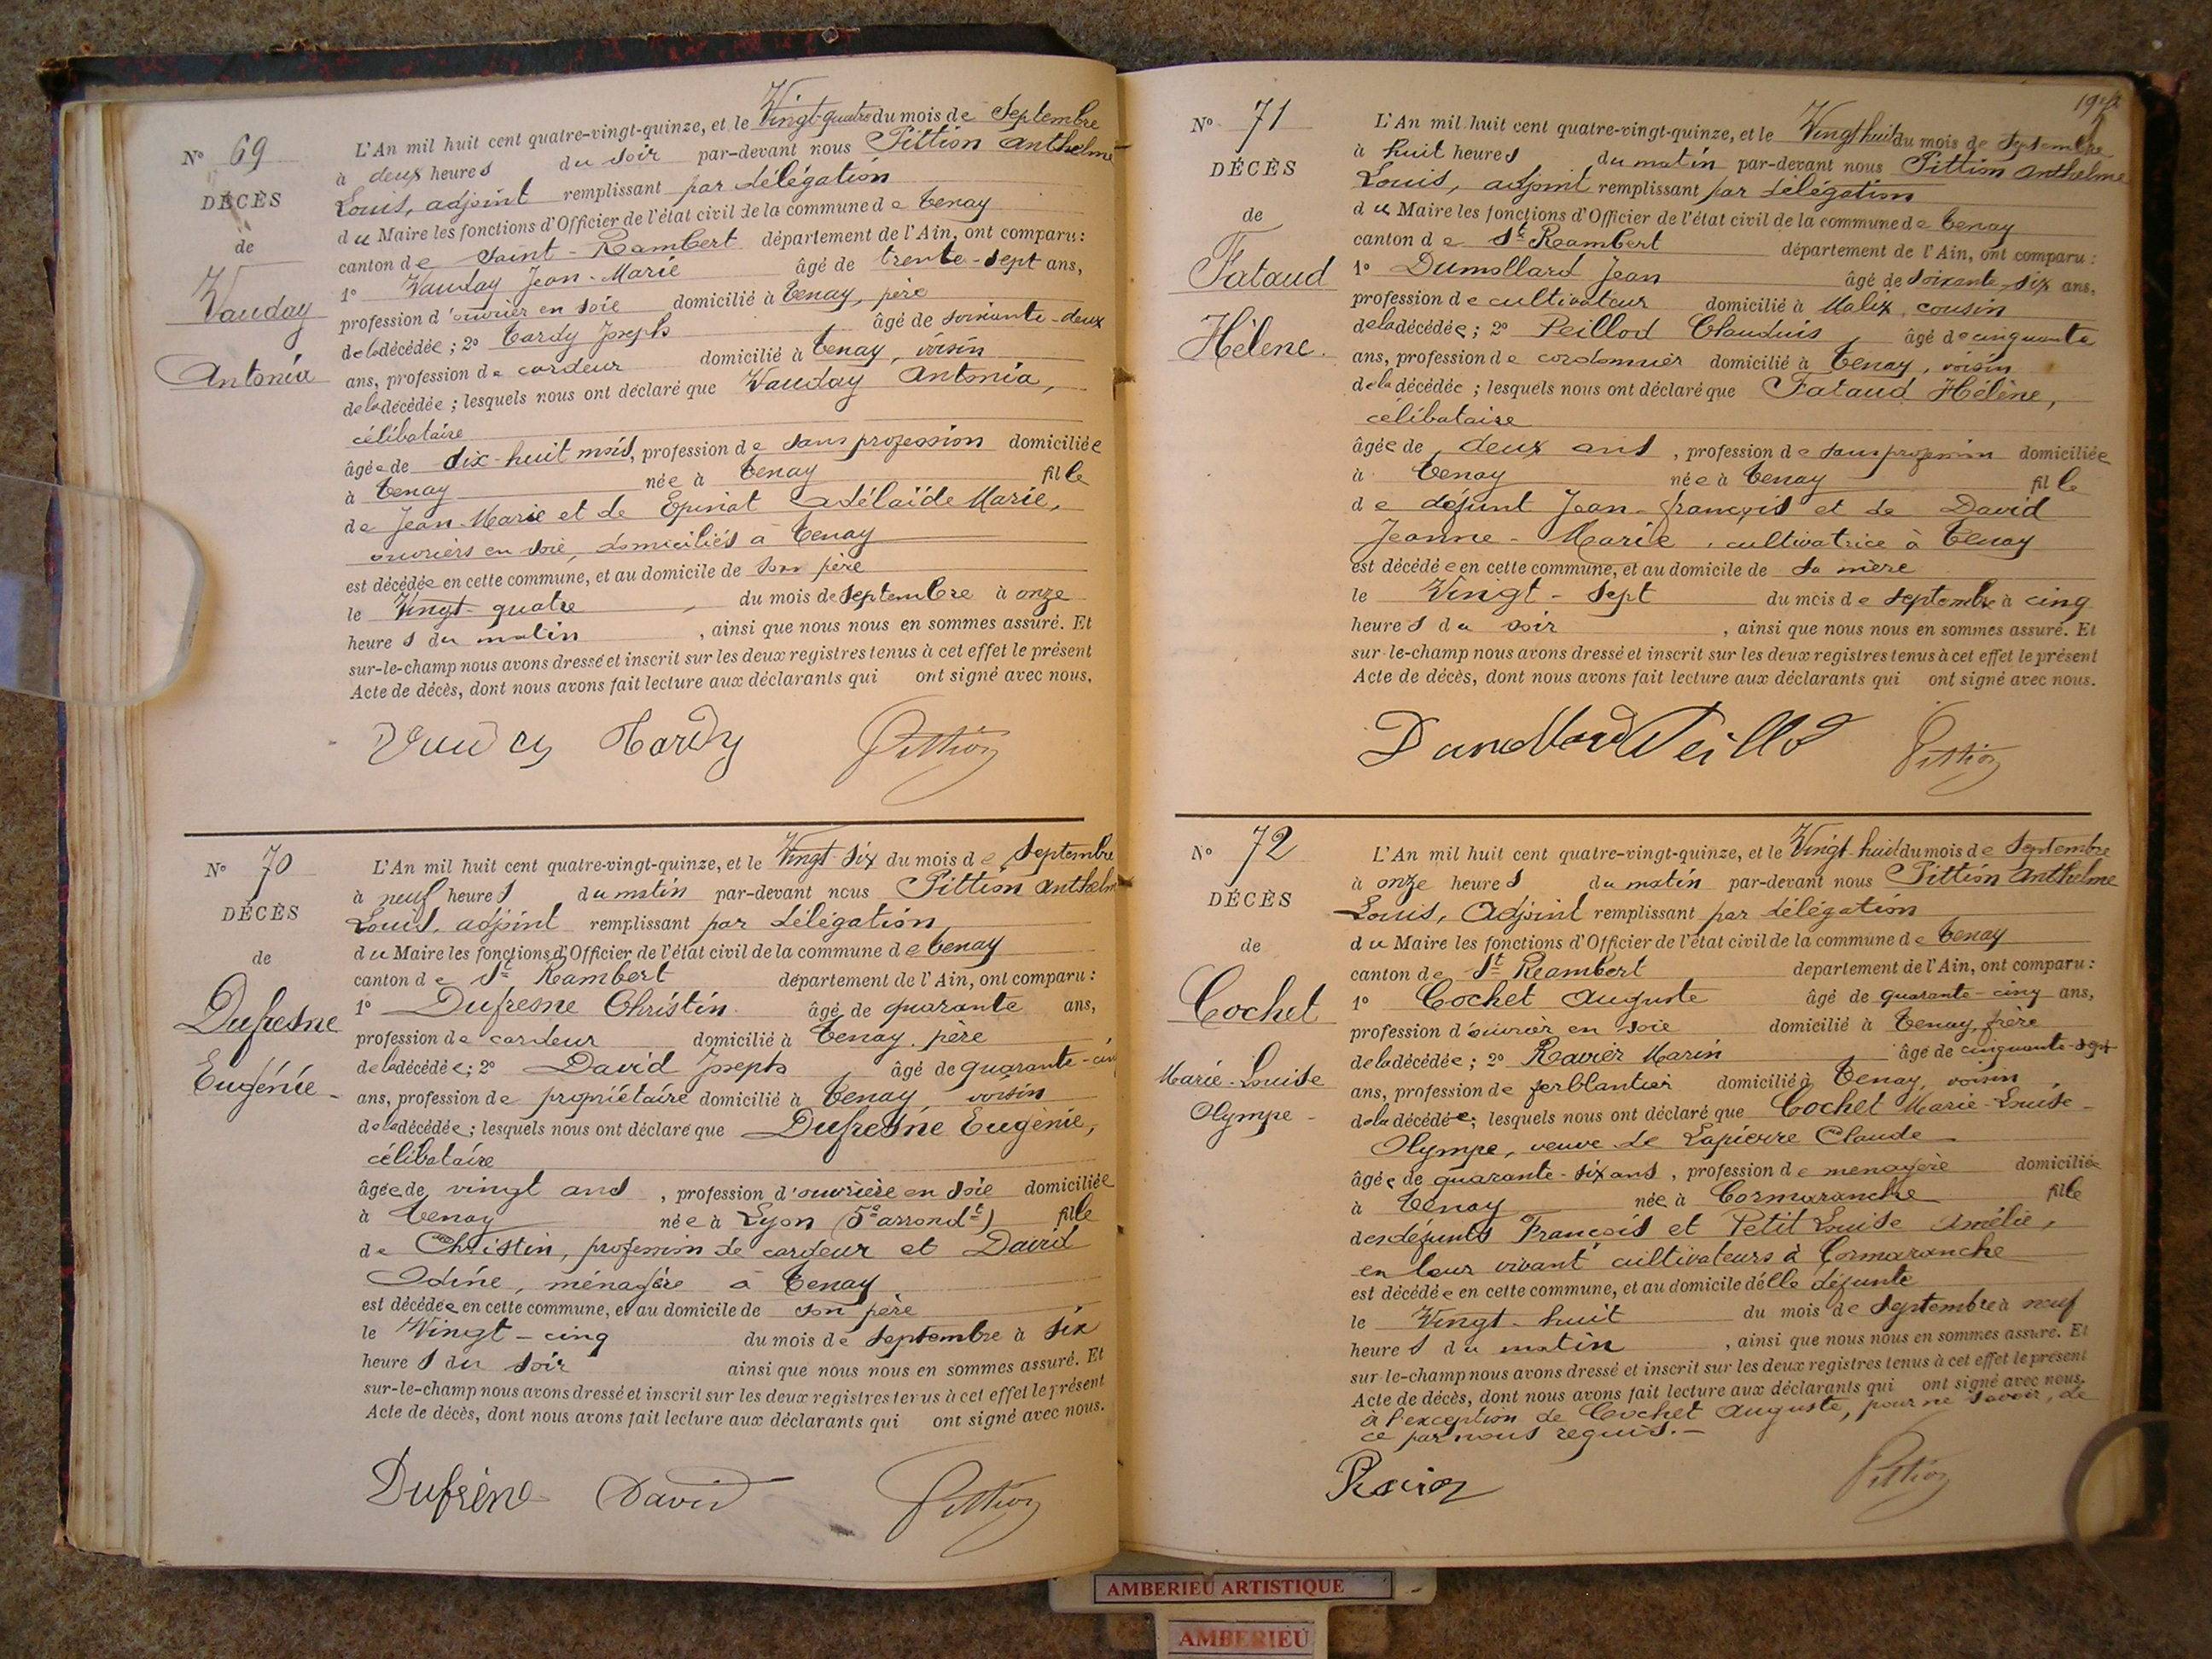 Nº 69
DÉCÈS
de
Vauday
Antonia
L'An mil huit cent quatre-vingt-quinze, et le Vingt-quatre du mois de Septembre
à deux heures du soir par-devant nous Pittion Anthelme
Louis, adjoint remplissant par délégation
du Maire les fonctions d'Officier de l'état civil de la commune de Tenay
canton de Saint-Rambert département de l'Ain, ont comparu :
1º Vauday Jean-Marie âgé de trente-sept ans,
profession d'ouvrier en soie domicilié à Tenay, père
de la décédée ; 2º Tardy Joseph âgé de soixante-deux
ans, profession de cardeur domicilié à Tenay, voisin
de la décédée ; lesquels nous ont déclaré que Vauday Antonia,
célibataire
âgée de dix-huit mois, profession de sans profession domiciliée
à Tenay née à Tenay fille
de Jean-Marie et de Epinat Adélaïde Marie,
ouvriers en soie, domiciliés à Tenay
est décédée en cette commune, et au domicile de son père
le Vingt-quatre du mois de Septembre à onze
heures du matin , ainsi que nous nous en sommes assuré. Et
sur-le-champ nous avons dressé et inscrit sur les deux registres tenus à cet effet le présent
Acte de décès, dont nous avons fait lecture aux déclarants qui ont signé avec nous.
Vauday Tardy Pittion
Nº 70
DÉCÈS
de
Dufresne
Eugénie
L'An mil huit cent quatre-vingt-quinze, et le Vingt-six du mois de Septembre
à neuf heures du matin par-devant nous Pittion Anthelm
Louis, adjoint remplissant par délégation
du Maire les fonctions d'Officier de l'état civil de la commune de Tenay
canton de St Rambert département de l'Ain, ont comparu :
1º Dufresne Christin âgé de quarante ans,
profession de cardeur domicilié à Tenay, père
de la décédée ; 2º David Joseph âgé de quarante-cin
ans, profession de propriétaire domicilié à Tenay, voisin
de la décédée ; lesquels nous ont déclaré que Dufresne Eugénie,
célibataire
âgée de vingt ans , profession d'ouvrière en soie domiciliée
à Tenay née à Lyon (5e arrondt) fille
de Christin, profession de cardeur et David
Odine, ménagère à Tenay
est décédée en cette commune, et au domicile de son père
le Vingt-cinq du mois de Septembre à six
heures du soir ainsi que nous nous en sommes assuré. Et
sur-le-champ nous avons dressé et inscrit sur les deux registres tenus à cet effet le présent
Acte de décès, dont nous avons fait lecture aux déclarants qui ont signé avec nous.
Dufrène David Pittion
Nº 71
DÉCÈS
de
Fataud
Hélène.
L'An mil huit cent quatre-vingt-quinze, et le Vingt huit du mois de Septembre
à huit heures du matin par-devant nous Pittion Anthelme
Louis, adjoint remplissant par délégation
du Maire les fonctions d'Officier de l'état civil de la commune de Tenay
canton de St Rambert département de l'Ain, ont comparu :
1º Dumollard Jean âgé de soixante-six ans,
profession de cultivateur domicilié à Malix, cousin
de la décédée ; 2º Peillod Claudius âgé de cinquante
ans, profession de cordonnier domicilié à Tenay, voisin
de la décédée ; lesquels nous ont déclaré que Fataud Hélène,
célibataire
âgée de deux ans , profession de sans profession domiciliée
à Tenay née à Tenay fille
de défunt Jean-françois et de David
Jeanne-Marie, cultivatrice à Tenay
est décédée en cette commune, et au domicile de sa mère
le Vingt-sept du mois de septembre à cinq
heures du soir , ainsi que nous nous en sommes assuré. Et
sur-le-champ nous avons dressé et inscrit sur les deux registres tenus à cet effet le présent
Acte de décès, dont nous avons fait lecture aux déclarants qui ont signé avec nous.
Dumollard Peillod Pittion
Nº 72
DÉCÈS
de
Cochet
Marie-Louise
Olympe
L'An mil huit cent quatre-vingt-quinze, et le Vingt-huit du mois de Septembre
à onze heures du matin par-devant nous Pittion Anthelme
Louis, Adjoint remplissant par délégation
du Maire les fonctions d'Officier de l'état civil de la commune de Tenay
canton de St Rambert département de l'Ain, ont comparu :
1º Cochet Auguste âgé de quarante-cinq ans,
profession d'ouvrier en soie domicilié à Tenay, frère
de la décédée ; 2º Ravier Marin âgé de cinquante-sept
ans, profession de ferblantier domicilié à Tenay, voisin
de la décédée ; lesquels nous ont déclaré que Cochet Marie-Louise-
Olympe, veuve de Lapierre Claude
âgée de quarante-six ans, profession de ménagère domiciliée
à Tenay née à Cormaranche fille
des défunts François et Petit Louise Amélie,
en leur vivant cultivateurs à Cormaranche
est décédée en cette commune, et au domicile de lle défunte
le Vingt-huit du mois de Septembre à neuf
heures du matin , ainsi que nous nous en sommes assuré. Et
sur-le-champ nous avons dressé et inscrit sur les deux registres tenus à cet effet le présent
Acte de décès, dont nous avons fait lecture aux déclarants qui ont signé avec nous.
à l'exception de Cochet Auguste, pour ne savoir, de
ce par nous requis.-
Ravier Pittion
AMBERIEU ARTISTIQUE
AMBERIEU